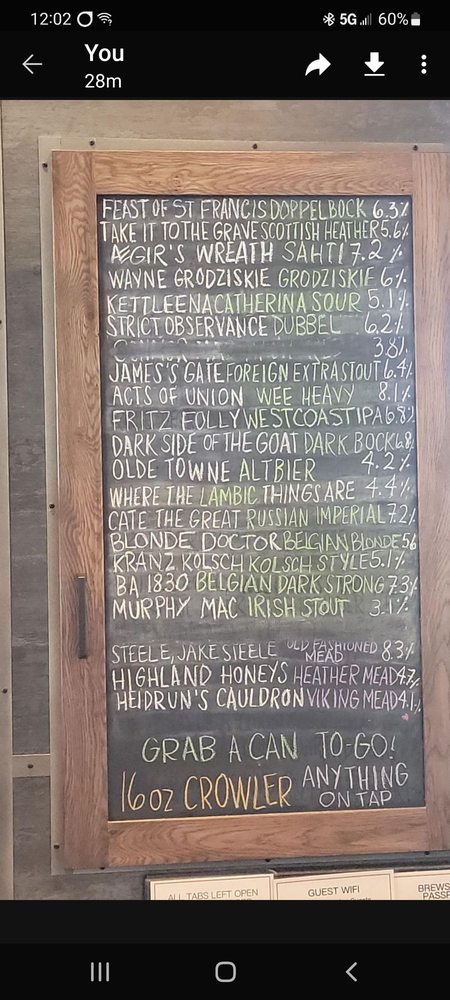 12:02
5G
60%
You
28m
FEAST OF ST FRANCIS DOPPELBOCK 6.3%
TAKE IT TO THE GRAVE SCOTTISH HEATHER 5.6%
ÆGIR'S WREATH SAHTI 7.2 %
WAYNE GRODZISKIE GRODZISKIE 6%
KETTLEENA CATHERINA SOUR 5.1%
STRICT OBSERVANCE DUBBEL 6.2%
3.8%
JAMES'S GATE FOREIGN EXTRA STOUT 6.4%
ACTS OF UNION WEE HEAVY 8.1%
FRITZ FOLLY WEST COAST IPA 6.8%
DARK SIDE OF THE GOAT DARK BOCK 6.8%
OLDE TOWNE ALTBIER 4.2%
WHERE THE LAMBIC THINGS ARE 4.4%
CATE THE GREAT RUSSIAN IMPERIAL 7.2%
BLONDE DOCTOR BELGIAN BLONDE 5.6
KRANZ KOLSCH KOLSCH STYLE 5.1%
BA 1830 BELGIAN DARK STRONG 7.3%
MURPHY MAC IRISH STOUT 3.1%
STEELE, JAKE STEELE OLD FASHIONED MEAD 8.3%
HIGHLAND HONEYS HEATHER MEAD 4.7%
HEIDRUN'S CAULDRON VIKING MEAD 4.1%
GRAB A CAN TO-GO!
16 oz CROWLER ANYTHING ON TAP
ALL TABS LEFT OPEN
GUEST WIFI
BREWS